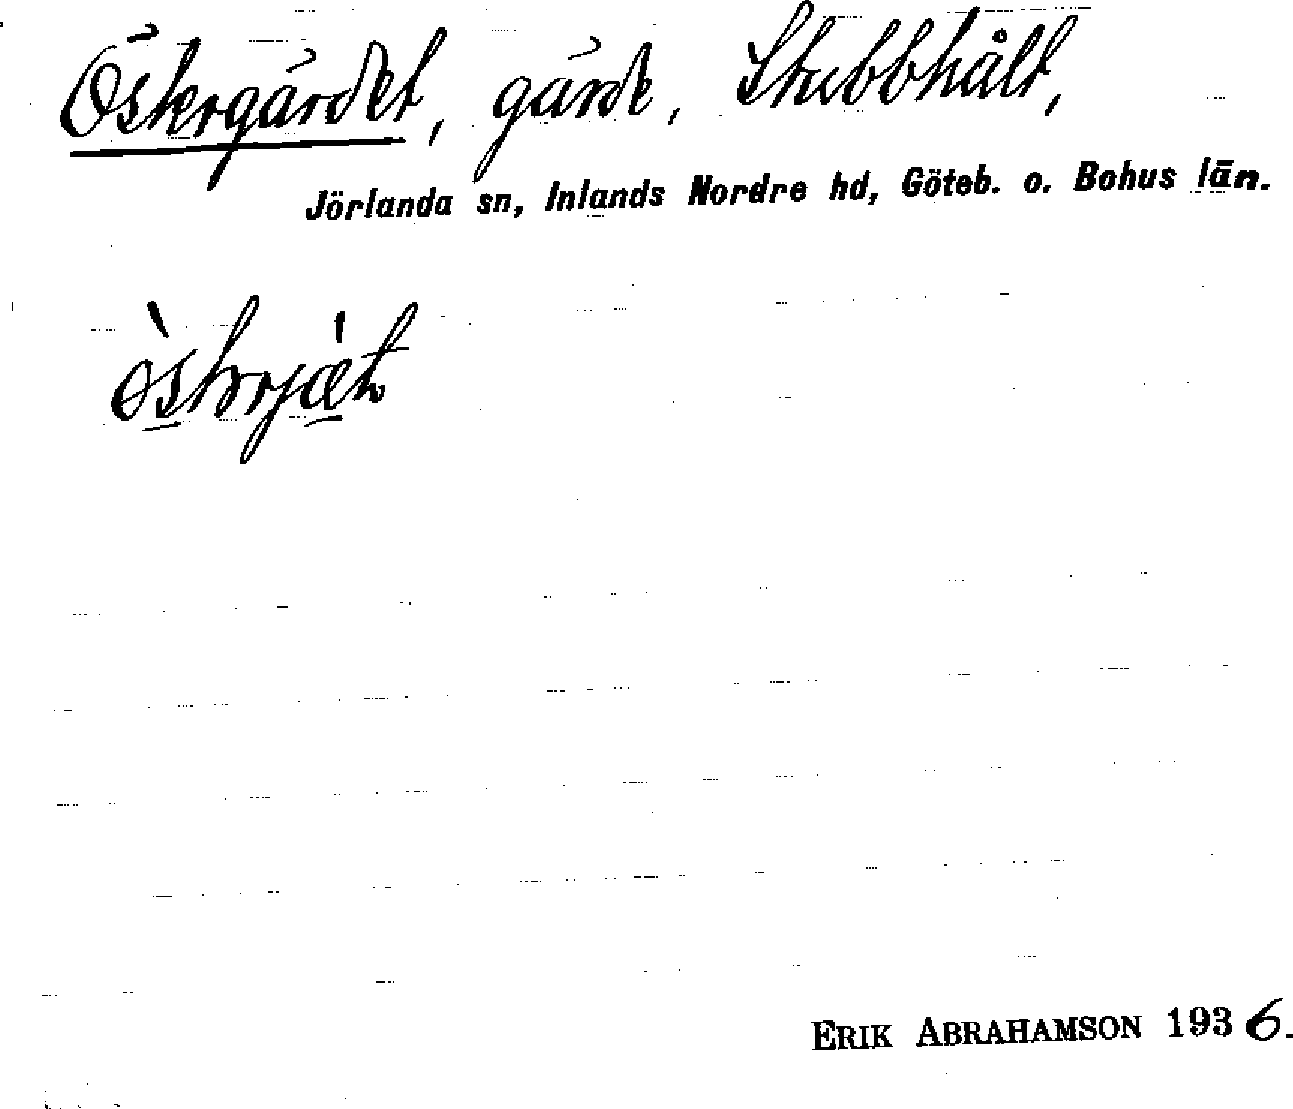 Östergärdet, gärde, Stubbhålt,
Jörlanda sn, Inlands Nordre hd, Göteb. o. Bohus län.
ERIK ABRAHAMSON 1936.